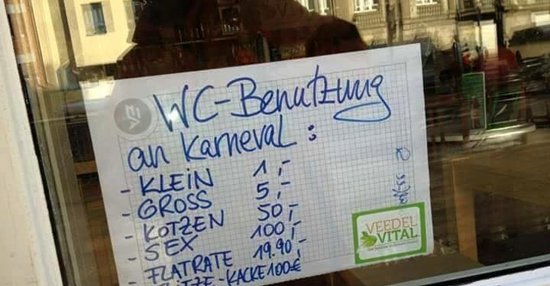 WC-Benutzung
an Karneval:
- KLEIN 1,-
- GROSS 5,-
- KOTZEN 50,-
- SEX 100,-
- FLATRATE 19.90,-
-KACKE 100€
VEEDEL
VITAL